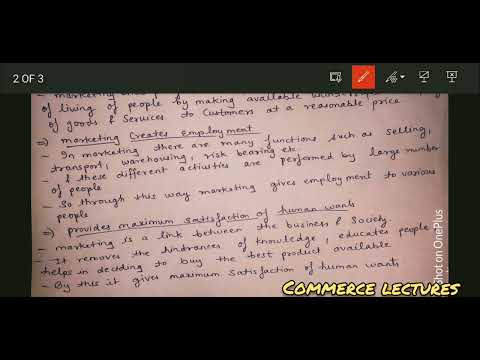 2 OF 3
- marketing
of living of people by making available
of goods & services to customers at a reasonable price
⇒) marketing creates employment
- In marketing there are many functions such as selling,
transport, warehousing, risk bearing etc
& these different activities are performed by large number
of people
- So through this way marketing gives employment to various
people
⇒) provides maximum satisfaction of human wants
- marketing is a link between the business & society.
- It removes the hindrances of knowledge, educates people &
helps in deciding to buy the best product available
- By this it gives maximum satisfaction of human wants
Shot on OnePlus
COMMERCE LECTURES